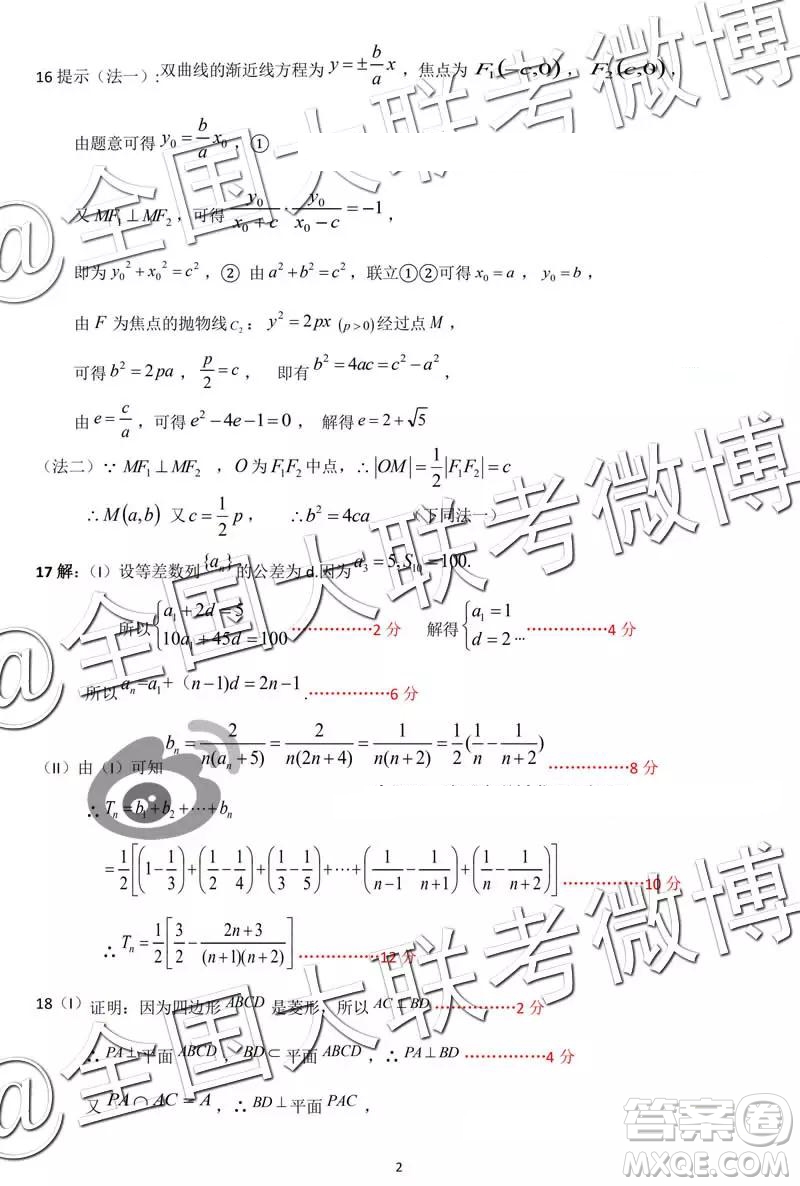 16 提示（法一）: 双曲线的渐近线方程为 y=±b/a x ，焦点为 F₁(−c,0) ，F₂(c,0) ，
由题意可得 y₀=b/a x₀ ，①
又 MF₁⊥MF₂ ，可得 y₀/(x₀+c)·y₀/(x₀−c)=−1 ，
即为 y₀²+x₀²=c² ，② 由 a²+b²=c² ，联立①②可得 x₀=a ，y₀=b ，
由 F 为焦点的抛物线 C₂ ：y²=2px (p>0) 经过点 M ，
可得 b²=2pa ，p/2=c ， 即有 b²=4ac=c²−a² ，
由 e=c/a ，可得 e²−4e−1=0 ， 解得 e=2+√5
（法二）∵ MF₁⊥MF₂ ，O 为 F₁F₂ 中点，∴|OM|=1/2|F₁F₂|=c
∴M(a,b) 又 c=1/2 p ， ∴b²=4ca （下同法一）
17 解：（I）设等差数列 {aₙ} 的公差为 d.因为 a₃=5,S₁₀=100.
所以 {a₁+2d=5 10a₁+45d=100 ……………2 分 解得 {a₁=1 d=2 … ……………4 分
所以 aₙ=a₁+（n−1)d=2n−1 .……………6 分
（II）由（I）可知 bₙ=2/(n(aₙ+5))=2/(n(2n+4))=1/(n(n+2))=1/2(1/n−1/(n+2)( ……………8 分
∴Tₙ=b₁+b₂+⋯+bₙ
=1/2[(1−1/3)+(1/2−1/4)+(1/3−1/5)+⋯+(1/(n−1)−1/(n+1))+(1/n−1/(n+2))] ……………10 分
∴Tₙ=1/2[3/2−(2n+3)/((n+1)(n+2))] ……………12 分
18（I）证明：因为四边形 ABCD 是菱形，所以 AC⊥BD ……………2 分
∴ PA⊥平面 ABCD ，BD⊂平面 ABCD ，∴PA⊥BD ……………4 分
又 PA∩AC=A ，∴BD⊥平面 PAC ，
2
@全国大联考微博
@全国大联考微博
@全国大联考微博
答案卷
MXQE.COM